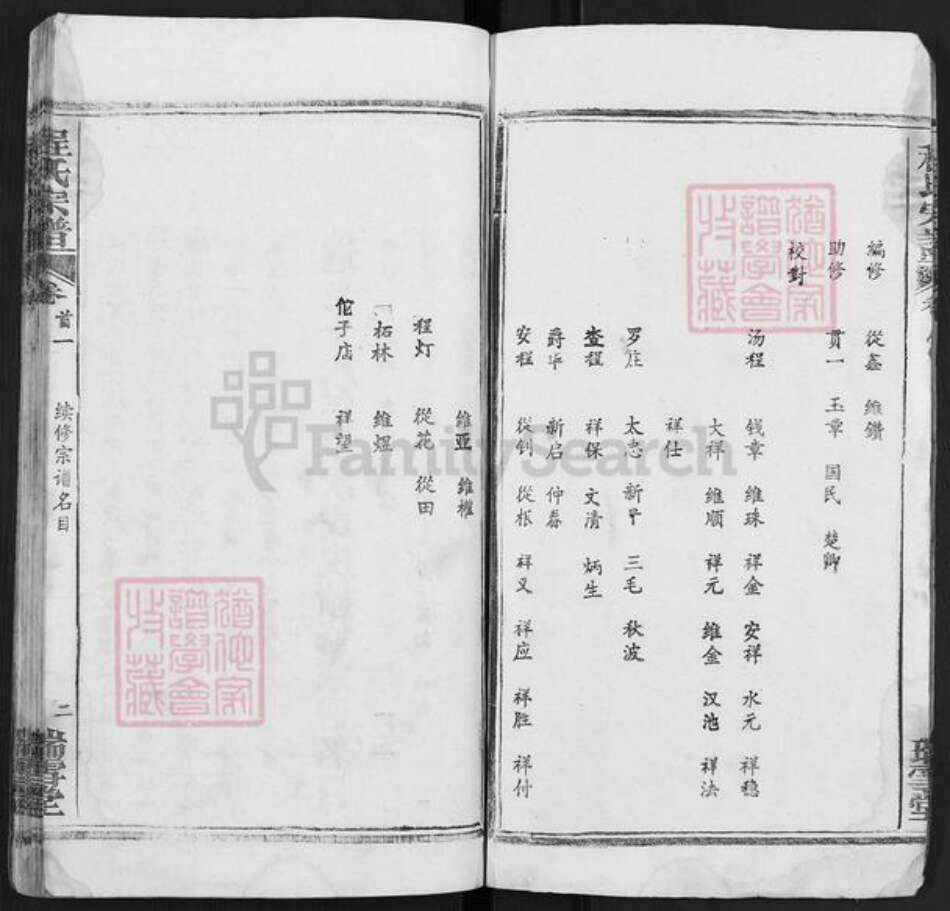 編修 從鑫 維鑽
助修 貫一 玉章 国民 楚卿
校對
汤程 钱章 維珠 祥金 安祥 水元 祥稳
大祥 維順 祥元 維金 汉池 祥法
祥仕
罗庄 太忠 新早 三毛 秋波
查程 祥保 文清 炳生
爵华 新启 仲春
安程 從钊 從根 祥义 祥应 祥胜 祥付
維亚 維權
程灯 從花 從田
柘林 維煜
佗子店 祥望
程氏宗譜
卷首一 续修宗谱名目 二
瑞雪堂
FamilySearch